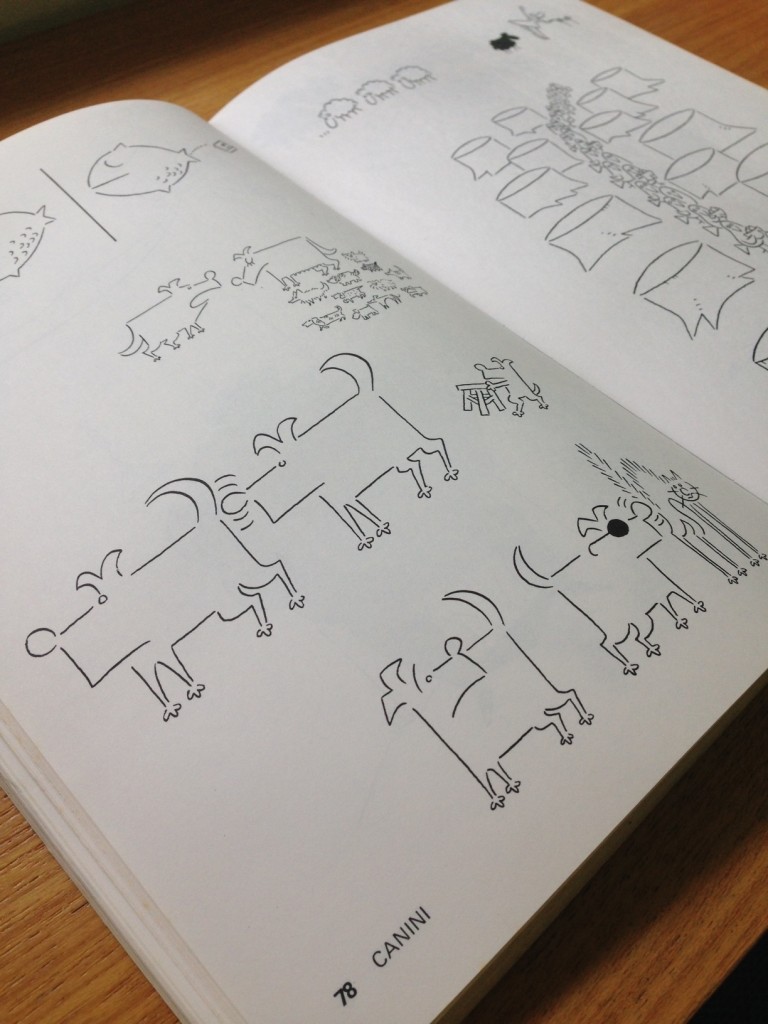 78 CANINI